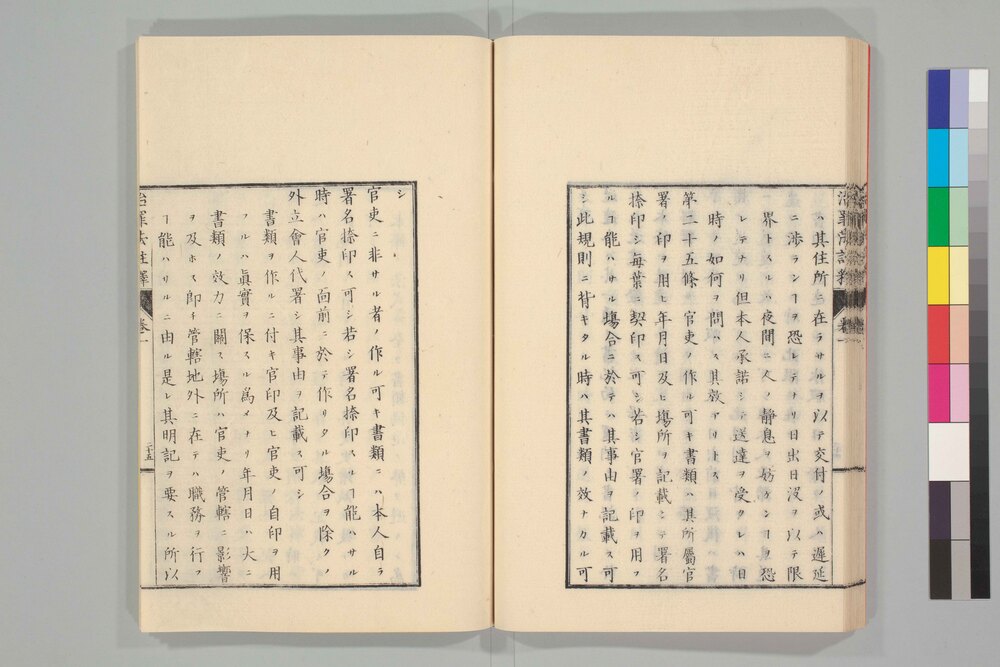 治罪法註釋 卷一
ハ其住所ニ在ラサルヲ以テ交付ノ或ハ遲延
ニ渉ランヿヲ恐レテナリ日出日沒ヲ以テ限
界トスルハ夜間ニ人ノ靜息ヲ妨ケンヿヲ恐
レテナリ但本人承諾シテ送達ヲ受クレハ日
時ノ如何ヲ問ハス其效アリトス
第二十五條 官吏ノ作ル可キ書類ハ其所屬官
署ノ印ヲ用ヒ年月日及ヒ塲所ヲ記載シテ署名
捺印シ每葉ニ契印ス可シ若シ官署ノ印ヲ用フ
ルヿ能ハサル塲合ニ於テハ其事由ヲ記載ス可
シ此規則ニ背キタル時ハ其書類ノ效ナカル可
シ
官吏ニ非サル者ノ作ル可キ書類ニハ本人自ラ
署名捺印ス可シ若シ署名捺印スルヿ能ハサル
時ハ官吏ノ面前ニ於テ作リタル塲合ヲ除クノ
外立會人代署シ其事由ヲ記載ス可シ
書類ヲ作ルニ付キ官印及ヒ官吏ノ自印ヲ用
フルハ眞實ヲ保スル爲メナリ年月日ハ大ニ
書類ノ效力ニ關ス塲所ハ官吏ノ管轄ニ影響
ヲ及ホス即チ管轄地外ニ在テハ職務ヲ行フ
ヿ能ハサルニ由ル是レ其明記ヲ要スル所以
治罪法註釋 卷一 二十五